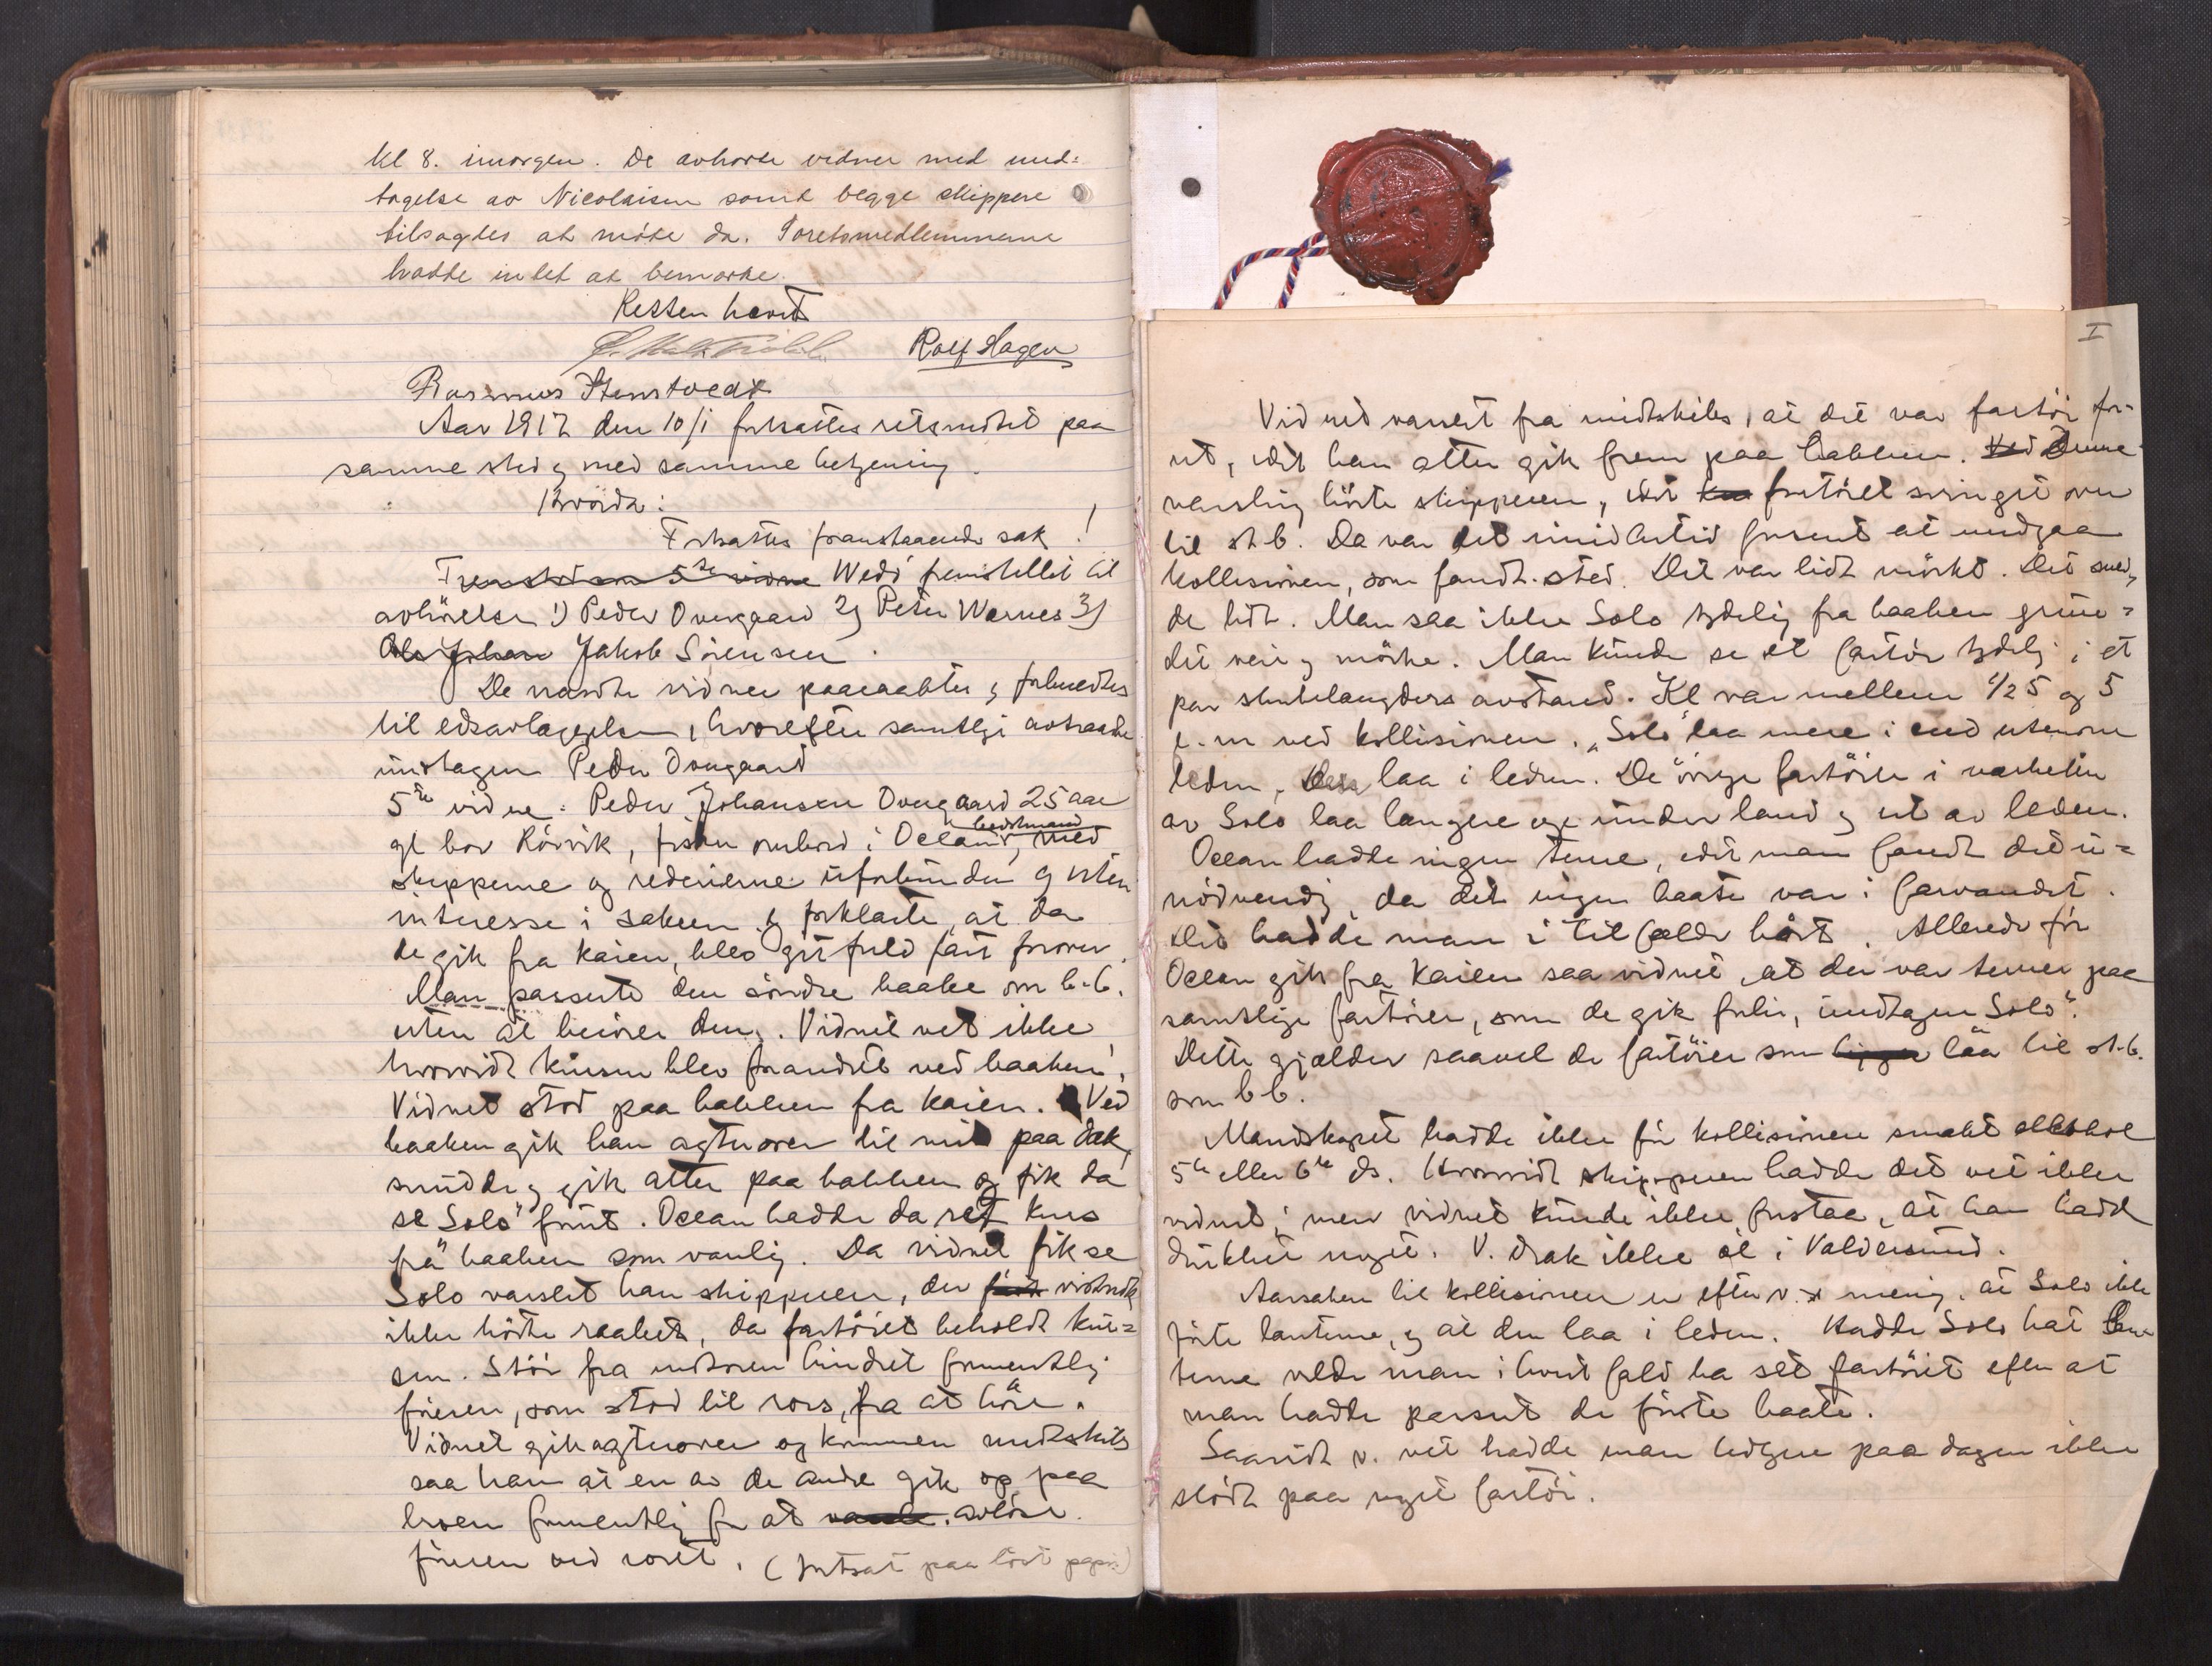 kl 8. imorgen. De avhørte vidner med und=
tagelse av Nicolaisen samt begge skippere
tilsagtes at møte da. Soretsmedlemmerne
hadde intet at bemærke.
Retten hævet
Rolf Hagen
Rasmus Stenstvedt
Aar 1917 den 10/1 fortsattes retsmøtet paa
samme sted og med samme betjening.
Hvorda:
Fortsattes foranstaaende sak!
Fremstod som 5te vidne Wedø fremstillet til
avhørelse 1) Peder Overgaard 2) Peter Wernes 3)
Ole Johan Jakob Sörensen.
De nævnte vidner paaraabtes og forberedtes
til edsavlæggelse, hvorefter samtlige avtraadte
undtagen Peder Overgaard
5te vidne: Peder Johansen Overgaard 25 aar
bestmand
gl bor Rörvik, fisker ombord i Ocean, med
skipperne og rederierne uforbunden og uten
interesse i saken og forklarte, at da
de gik fra kaien, blev git fuld fart forover.
Man passerte den söndre baake om b.b.
uten at berøre den. Vidnet vet ikke
hvorvidt kursen blev forandret ved baaken.
Vidnet stod paa bakken fra kaien. Ved
baaken gik han agterover til midt paa dæk,
snudde og gik atter paa bakken og fik da
se "Solo" forut. Ocean hadde da ret kurs
fra baaken som vanlig. Da vidnet fik se
Solo varslet han skipperen, der först vistnok
ikke hörte raabet, da fartöiet beholdt kur=
sen. Stöi fra motoren hindret formentlig
föreren, som stod til rors, fra at höre.
Vidnet gik agterover og kommen midtskibs
saa han at en av de andre gik op paa
broen formentlig for at varsle. avlöse
föreren ved roret. (fortsat paa löst papir)
I
Vidnet varslet fra midtskibs, at det var fartöi for-
ut, idet han atter gik frem paa bakken. Ved Denne
varsling hörte skipperen, idet han fartöiet svinget over
til st.b. Da var det imidlertid forsent at undgaa
kollisionen, som fandt sted. Det var lidt mörkt. Det sned=
de lidt. Man saa ikke Solo tydelig fra baaken grun=
det veir og mörke. Man kunde se et fartöi tydelig i et
par skibslængders avstand. Kl var mellem 1/2 5 og 5
e.m ved kollisionen. "Solo" laa mere i end utenom
leden, Den laa i leden. De övrige fartöier i nærheten
av Solo laa længere op under land og ut av leden.
Ocean hadde ingen terne, idet man fandt det u=
nödvendig, da det ingen baate var i farvandet.
Det hadde man i tilfælde hört. Allerede för
Ocean gik fra kaien saa vidnet, at der var terner paa
samtlige fartöier, som de gik forbi, undtagen "Solo".
Dette gjælder saavel de fartöier som ligger laa til st.b.
som b b.
Mandskapet hadde ikke för kollisionen smakt alkohol
5te eller 6te ds. Hvorvidt skipperen hadde det vet ikke
vidnet; men vidnet kunde ikke forstaa, at han hadde
drukket noget. V. drak ikke öl i Valdersund.
Aarsaken til kollisionen er efter v.s mening, at Solo ikke
förte lanterne, og at den laa i leden. Hadde Solo hat lan
terne vilde man i hvert fald ha set fartöiet efter at
man hadde passert de förste baate.
Saavidt v. vet hadde man tidligere paa dagen ikke
stödt paa noget fartöi.